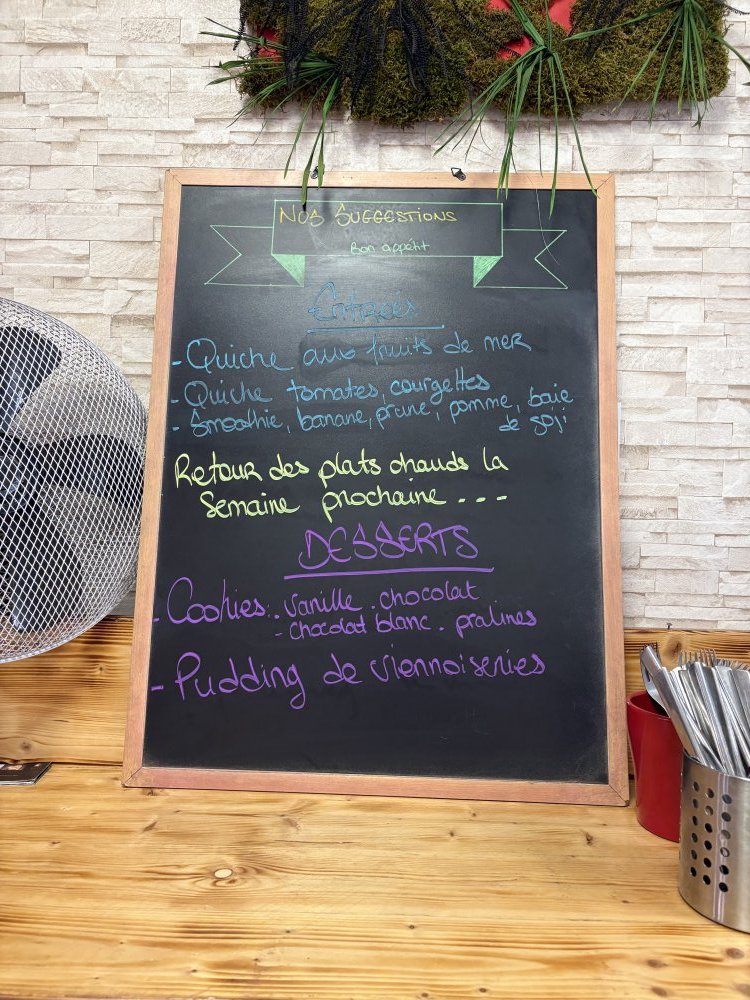 Nos Suggestions
Bon appétit
Entrées
- Quiche aux fruits de mer
- Quiche tomates, courgettes
- Smoothie, banane, prune, pomme, baie
de goji
Retour des plats chauds la
Semaine prochaine . . .
DESSERTS
- Cookies . . vanille . chocolat
- chocolat blanc . pralines
- Pudding de viennoiseries